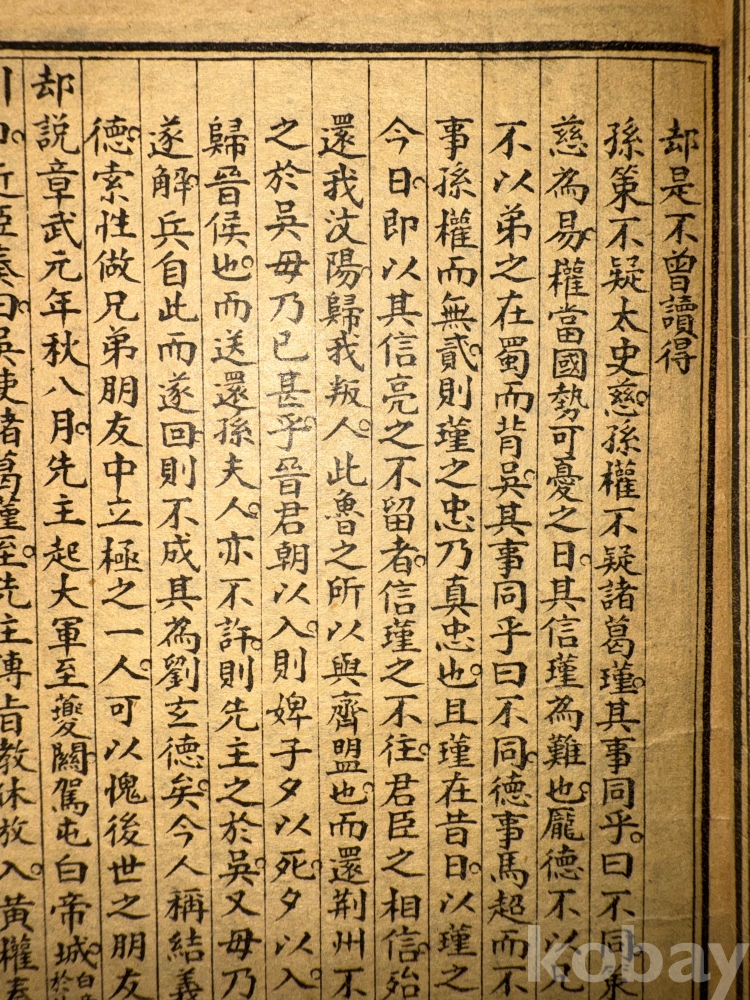 却是不曾讀得
孫策不疑太史慈孫權不疑諸葛瑾其事同乎曰不同策
慈為易權當國勢可憂之日其信瑾為難也龐德不以兄
不以弟之在蜀而背吳其事同乎曰不同德事馬超而不
事孫權而無貳則瑾之忠乃真忠也且瑾在昔日以瑾之
今日即以其信亮之不留者信瑾之不往君臣之相信殆
還我汶陽歸我叛人此魯之所以與齊盟也而還荆州不
之於吳毋乃已甚乎晉君朝以入則婢子夕以死夕以入
歸晉侯也而送還孫夫人亦不許則先主之於吳又毋乃
遂解兵自此而遂回則不成其為劉玄德矣今人稱結義
德索性做兄弟朋友中立極之一人可以愧後世之朋友
却說章武元年秋八月先主起大軍至夔關駕屯白帝城
近臣奏曰吳使諸葛瑾至先主傳旨教休放入黃權奏
kobay